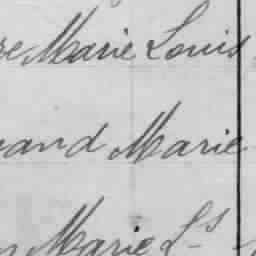 re Marie Louis
and Marie
Marie Ls